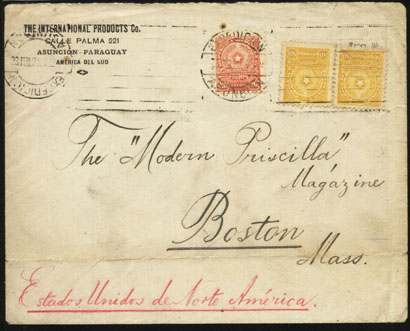 THE INTERNATIONAL PRODUCTS Co.
CALLE PALMA 221
ASUNCIÓN - PARAGUAY
AMÉRICA DEL SUD
The "Modern Priscilla"
Magázine
Boston
Mass.
Estados Unidos de Norte América.